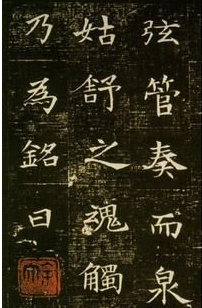 弦管奏而泉
姑舒之魂觸
乃為銘曰